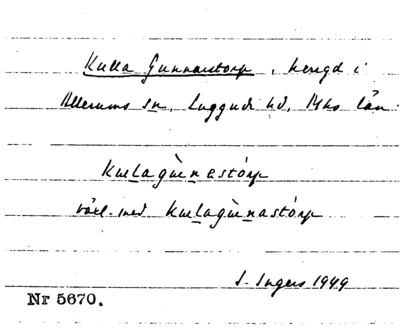 Kulla Gunnarstorp, herrgd i
Allerums sn, Luggude hd, Mhs län.
Kullagùnestórp
växl. med Kullagùnastórp
I. Ingers 1949
Nr 5670.